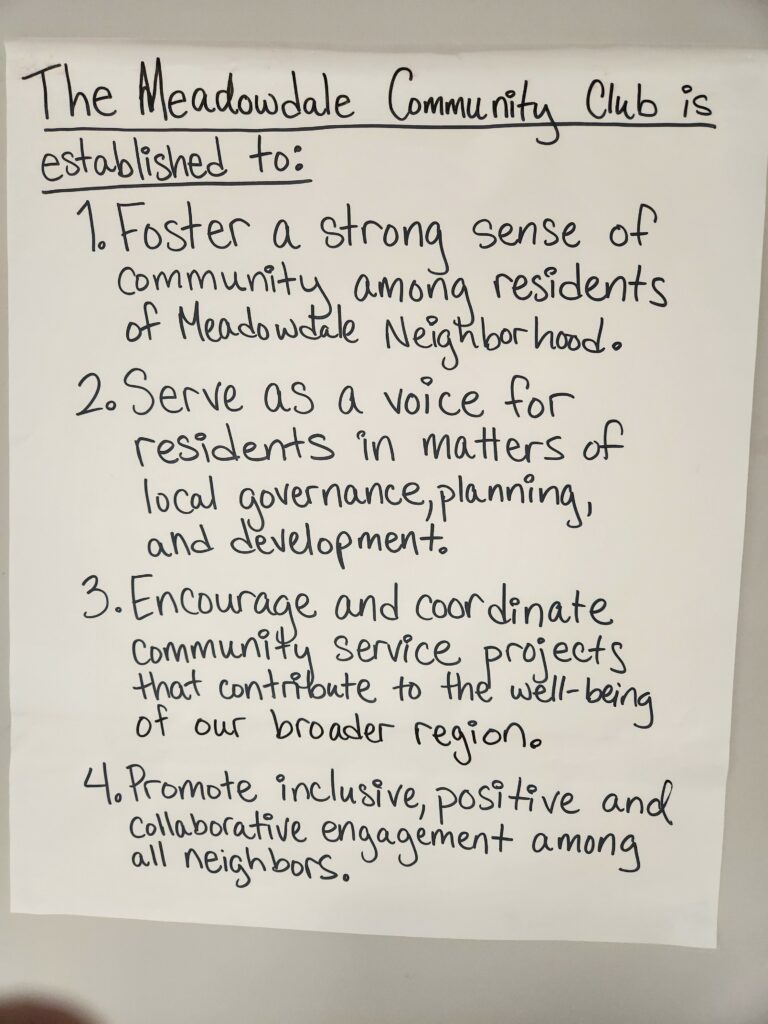 The Meadowdale Community Club is
established to:
1. Foster a strong sense of
community among residents
of Meadowdale Neighborhood.
2. Serve as a voice for
residents in matters of
local governance, planning,
and development.
3. Encourage and coordinate
community service projects
that contribute to the well-being
of our broader region.
4. Promote inclusive, positive and
collaborative engagement among
all neighbors.